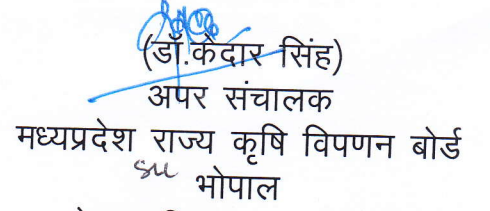 (डॉ.केदार सिंह)
अपर संचालक
मध्यप्रदेश राज्य कृषि विपणन बोर्ड
भोपाल